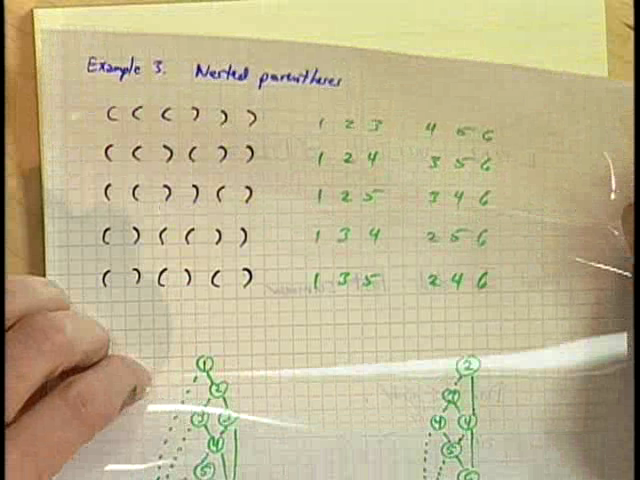 Example 3. Nested parentheses
( ( ( ) ) ) 1 2 3 4 5 6
( ( ) ( ) ) 1 2 4 3 5 6
( ( ) ) ( ) 1 2 5 3 4 6
( ) ( ( ) ) 1 3 4 2 5 6
( ) ( ) ( ) 1 3 5 2 4 6
1 2
2
3 4 4
4 5
5